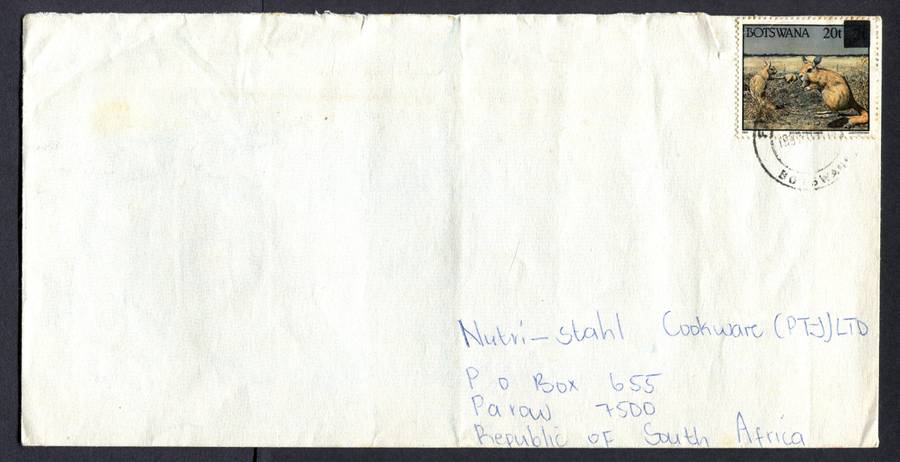 BOTSWANA 20t
BOTSWANA
Nutri-stahl Cookware (PTJ) LTD
P O Box 655
Parow 7500
Republic of South Africa